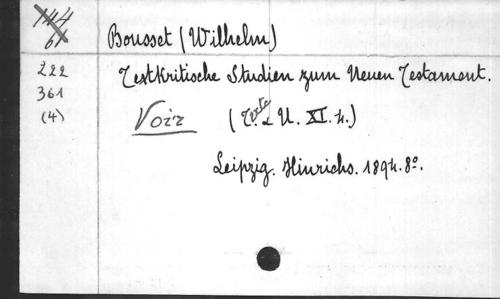 144
61
Bousset (Wilhelm)
222
361
(4)
Textkritische Studien zum Neuen Testament.
Voir (Texte & U. XI. 4.)
Leipzig. Hinrichs. 1894. 8º.